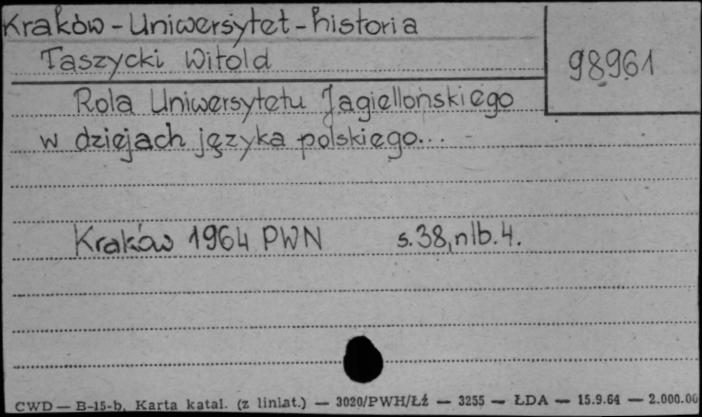 Kraków - Uniwersytet - historia
Taszycki Witold
98961
Rola Uniwersytetu Jagiellońskiego
w dziejach języka polskiego...
Kraków 1964 PWN s. 38, nlb. 4.
CWD — B-15-b, Karta katal. (z liniat.) — 3020/PWH/Łź — 3255 — ŁDA — 15.9.64 — 2.000.00